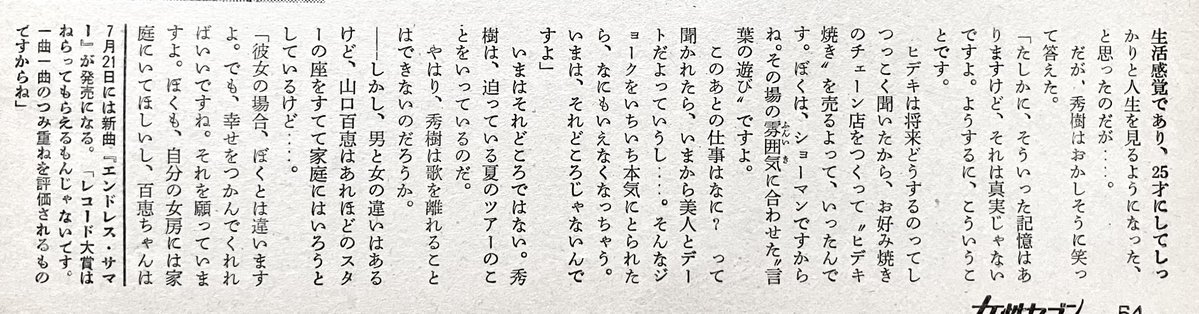 生活感覚であり、25才にしてしっ
かりと人生を見るようになった、
と思ったのだが‥‥。
だが、秀樹はおかしそうに笑っ
て答えた。
「たしかに、そういった記憶はあ
りますけど、それは真実じゃない
ですよ。ようするに、こういうこ
とです。
ヒデキは将来どうするのってし
つっこく聞いたから、お好み焼き
のチェーン店をつくって〝ヒデキ
焼き〟を売るよって、いったんで
す。ぼくは、ショーマンですから
ね。その場の雰囲気に合わせた〝言
葉の遊び〟ですよ。
このあとの仕事はなに？　って
聞かれたら、いまから美人とデー
トだよっていうし‥‥。そんなジ
ョークをいちいち本気にとられた
ら、なにもいえなくなっちゃう。
いまは、それどころじゃないんで
すよ」
いまはそれどころではない。秀
樹は、迫っている夏のツアーのこ
とをいっているのだ。
やはり、秀樹は歌を離れること
はできないのだろうか。
――しかし、男と女の違いはある
けど、山口百恵はあれほどのスタ
ーの座をすてて家庭にはいろうと
しているけど‥‥。
「彼女の場合、ぼくとは違います
よ。でも、幸せをつかんでくれれ
ばいいですね。それを願っていま
すよ。ぼくも、自分の女房には家
庭にいてほしいし、百恵ちゃんは
7月21日には新曲『エンドレス・サマ
ー』が発売になる。「レコード大賞は
ねらってもらえるもんじゃないです。
一曲一曲のつみ重ねを評価されるもの
ですからね」
女性セブン
54